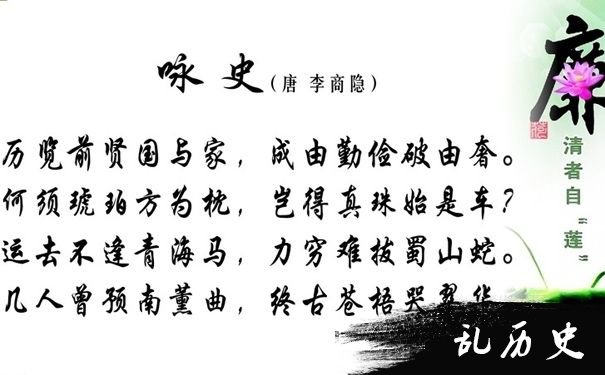 咏史(唐 李商隐)
历览前贤国与家，成由勤俭破由奢。
何须琥珀方为枕，岂得真珠始是车?
运去不逢青海马，力穷难拔蜀山蛇。
几人曾预南薰曲，终古苍梧哭翠华
廉
清者自“莲”
乱历史